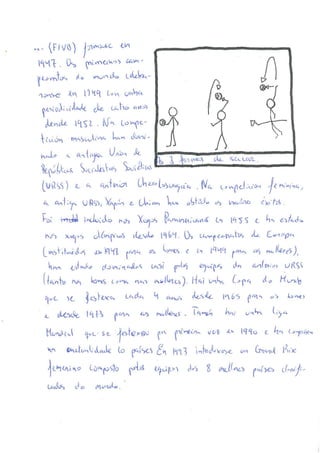 ... (FIVO) formouse en
1947. Os primeiros cam-
peonatos do mundo celebra-
ronse en 1949 con unha
periodicidade de catro anos
dende 1952. Na compe-
tición masculina han domi-
nado a antiga Unión de
Repúblicas Socialistas Soviéticas
As 3 formas de sacar.
(URSS) e a anterior Checoslovaquia. Na competición feminina,
a antiga URSS, Xapón e China han obtido os maiores éxitos.
Foi incluído nos Xogos Panamericanos en 1955 e ha estado
nos xogos olímpicos desde 1964. Os campeonatos de Europa
(instituídos en 1948 para os homes e en 1949 para as mulleres),
han estado dominados casi polos equipos da anterior URSS
(tanto nos homes como nas mulleres). Hai unha Copa do Mundo
que se festexa cada 4 anos desde 1965 para os homes
e desde 1973 para as mulleres. Tamén hai unha Liga
Mundial que se festexou por primeira vez en 1990 e na
actualidade 10 países. En 1993 introduciuse un Grand Prix
femenino composto polos equipos dos 8 mellores países clasifi-
cados do mundo.